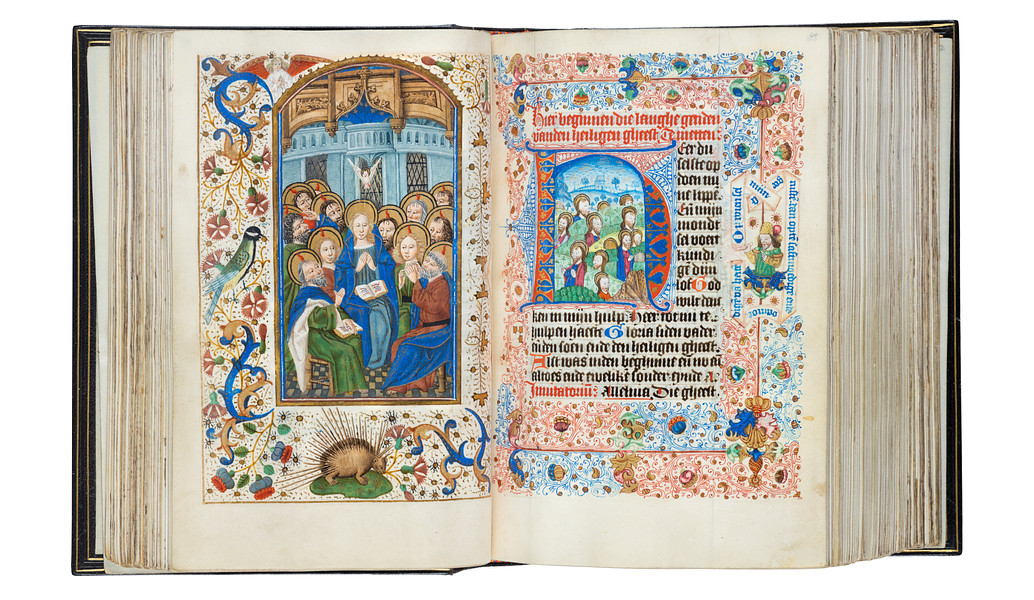 Hier beginnen die langhe getiden
vanden heiligen gheest Tmetten:
Eer du
selste op
doen mi
ne lippe.
En mijn
mondt
sel voert
kundi
gē dijn
lof God
wilt den
ken in mijn hulp. Heer tot mi te
hulpen haeste Gloria siden vader
enden soen ende den heiligen gheest.
Alst was inden beghinne en nv en
altoes ende ewelike sonder eynde A
Jnuitatoriū: Alleluia Die gheest